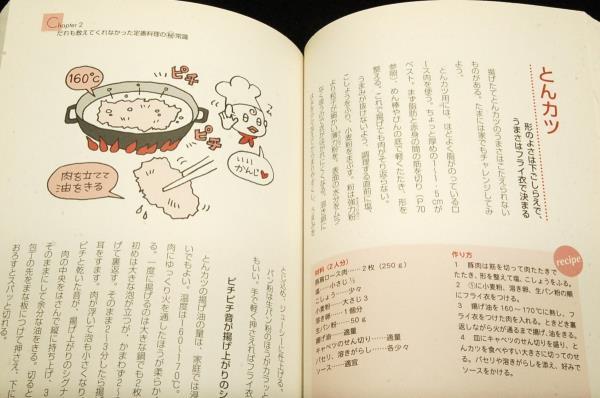 Chapter 2
だれも教えてくれなかった定番料理の㊙常識
とんカツ
形のよさは下ごしらえで、
うまさはフライ衣で決まる
揚げたてとんカツのうまさはこたえられない
ものがある。たまには家でもチャレンジしてみ
よう。
とんカツ用には、ほどよく脂がのっているロ
ース肉を使う。ちょっと厚めの1〜1.5cmが
ベスト。まず脂肪と赤身の間の筋を切り（P70
参照）、めん棒やびんの底で軽くたたき、形を
整える。これで揚げても肉がそり返らない。
うまみが抜けないよう、調理する直前に塩、
こしょうをふり、小麦粉をまぶす。粉は強力粉
recipe
材料（2人分）
豚肩ロース肉……2枚（250g）
塩……小さじ½
こしょう……少々
小麦粉……大さじ3
溶き卵……1個分
生パン粉……50g
揚げ油……適量
キャベツのせん切り……適量
パセリ、溶きがらし……各少々
ソース……適宜
作り方
1 豚肉は筋を切って肉たたきで
たたき、形を整えて塩、こしょう。
2 ①に小麦粉、溶き卵、生パン粉の順
にフライ衣をつける。
3 揚げ油を160〜170℃に熱し、フ
ライ衣をつけた肉を入れる。ときどき裏
返しながら火が通るまで揚げ、油をきる。
4 皿にキャベツのせん切りを盛り、と
んカツを食べやすい大きさに切ってのせ
る。パセリや溶きがらしを添え、好みで
ソースをかける。
160℃
ピチ
ピチ
いい
かんじ
肉を立てて
油をきる
パン粉は生パン粉のほうがカラッと
もいい。手で軽く押さえればフライ衣
ピチピチ音が揚げ上がりのシ
とんカツの揚げ油の量は、家庭では浸
いでもよい。温度は160〜170℃。
肉にゆっくり火を通したほうが柔らか
る。一度に揚げるのは大きな鍋でも2枚
初めは大きな泡が立つが、かまわず2〜
げて裏返す。そのまま2〜3分したら揚
耳をすます。肉が浮いて泡も小さくなり
ピチと乾いた音が、揚げ上がりのシグナ
肉の中央をはさんで縦に持ち上げ、3
そのままにして余分な油をきる。切ると
包丁の先をまな板につけて押さえ、下に
おろすとスパッと切れる。